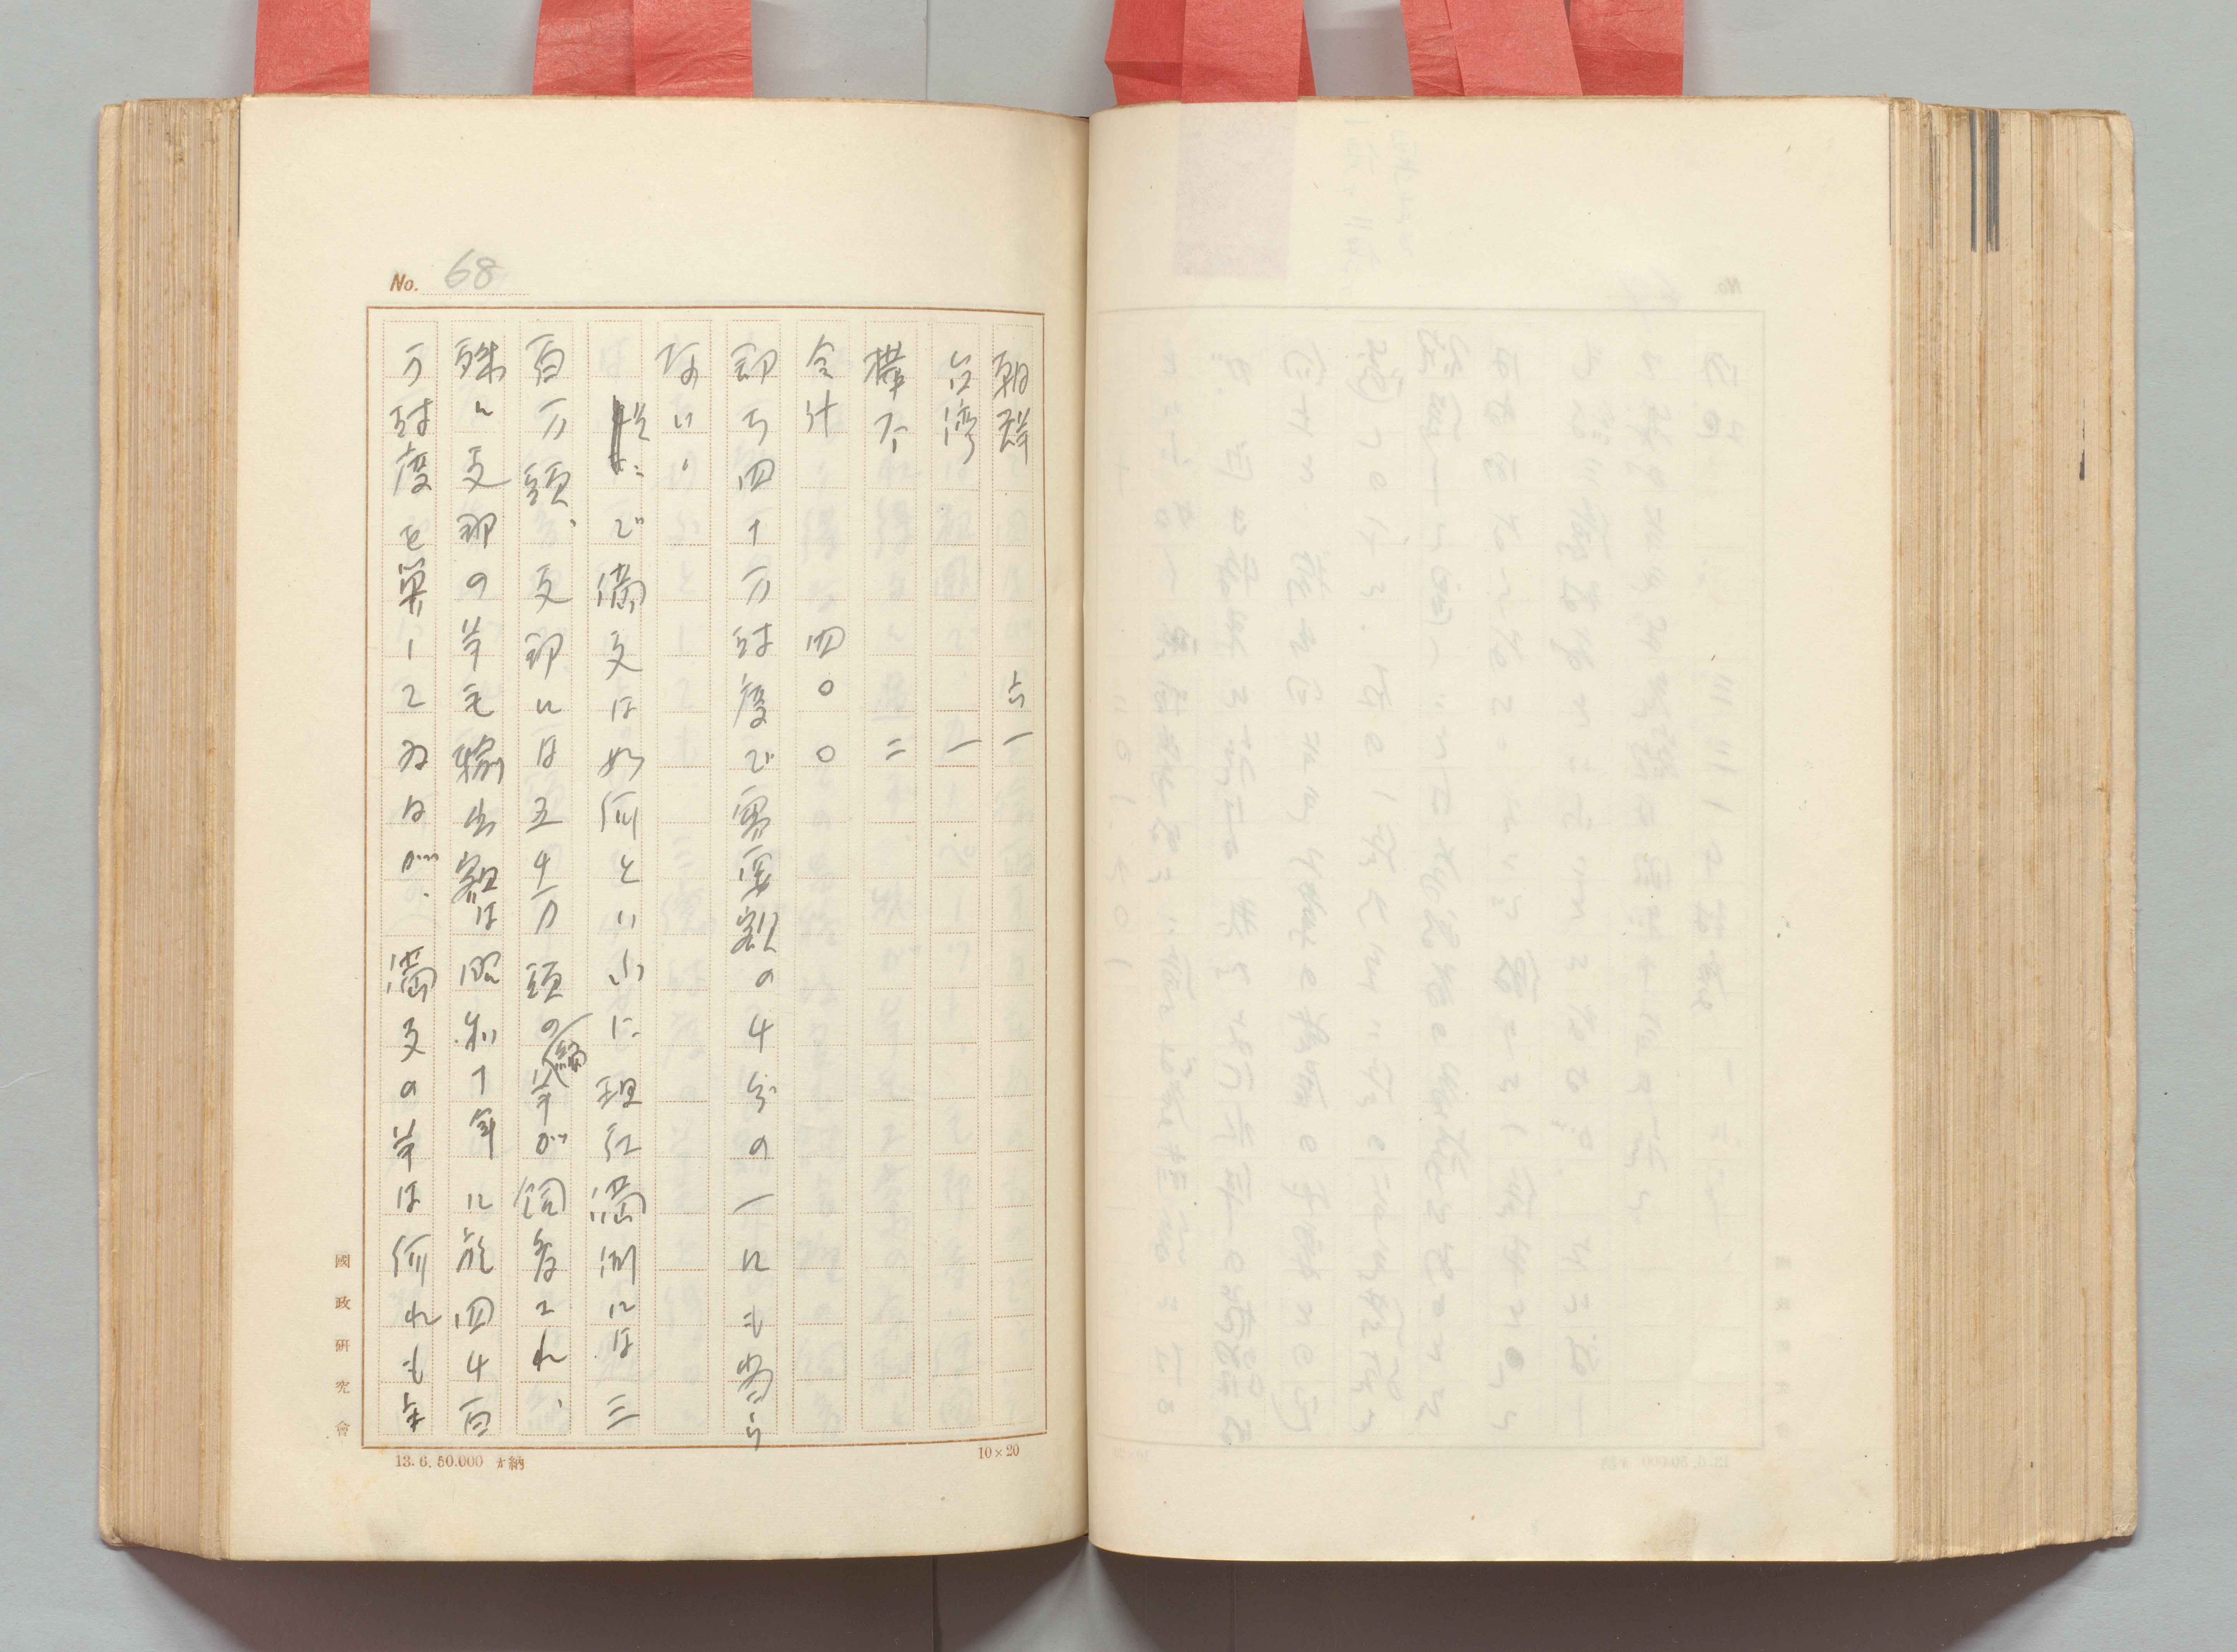 No. 68
朝鮮　六一
台湾　一
樺太　二
合計　四〇〇
即ち四十万封度で需要額の4分の一にも当ら
ない、
で満支は如何といふに現在満洲には三
百万頭、支那には五千万頭の緬羊が飼養され、
殊に支那の羊毛輸出額は昭和十年に於四千百
万封度を算してゐたが、満支の羊は何れも
國政研究會
13.6.50.000 納
10×20